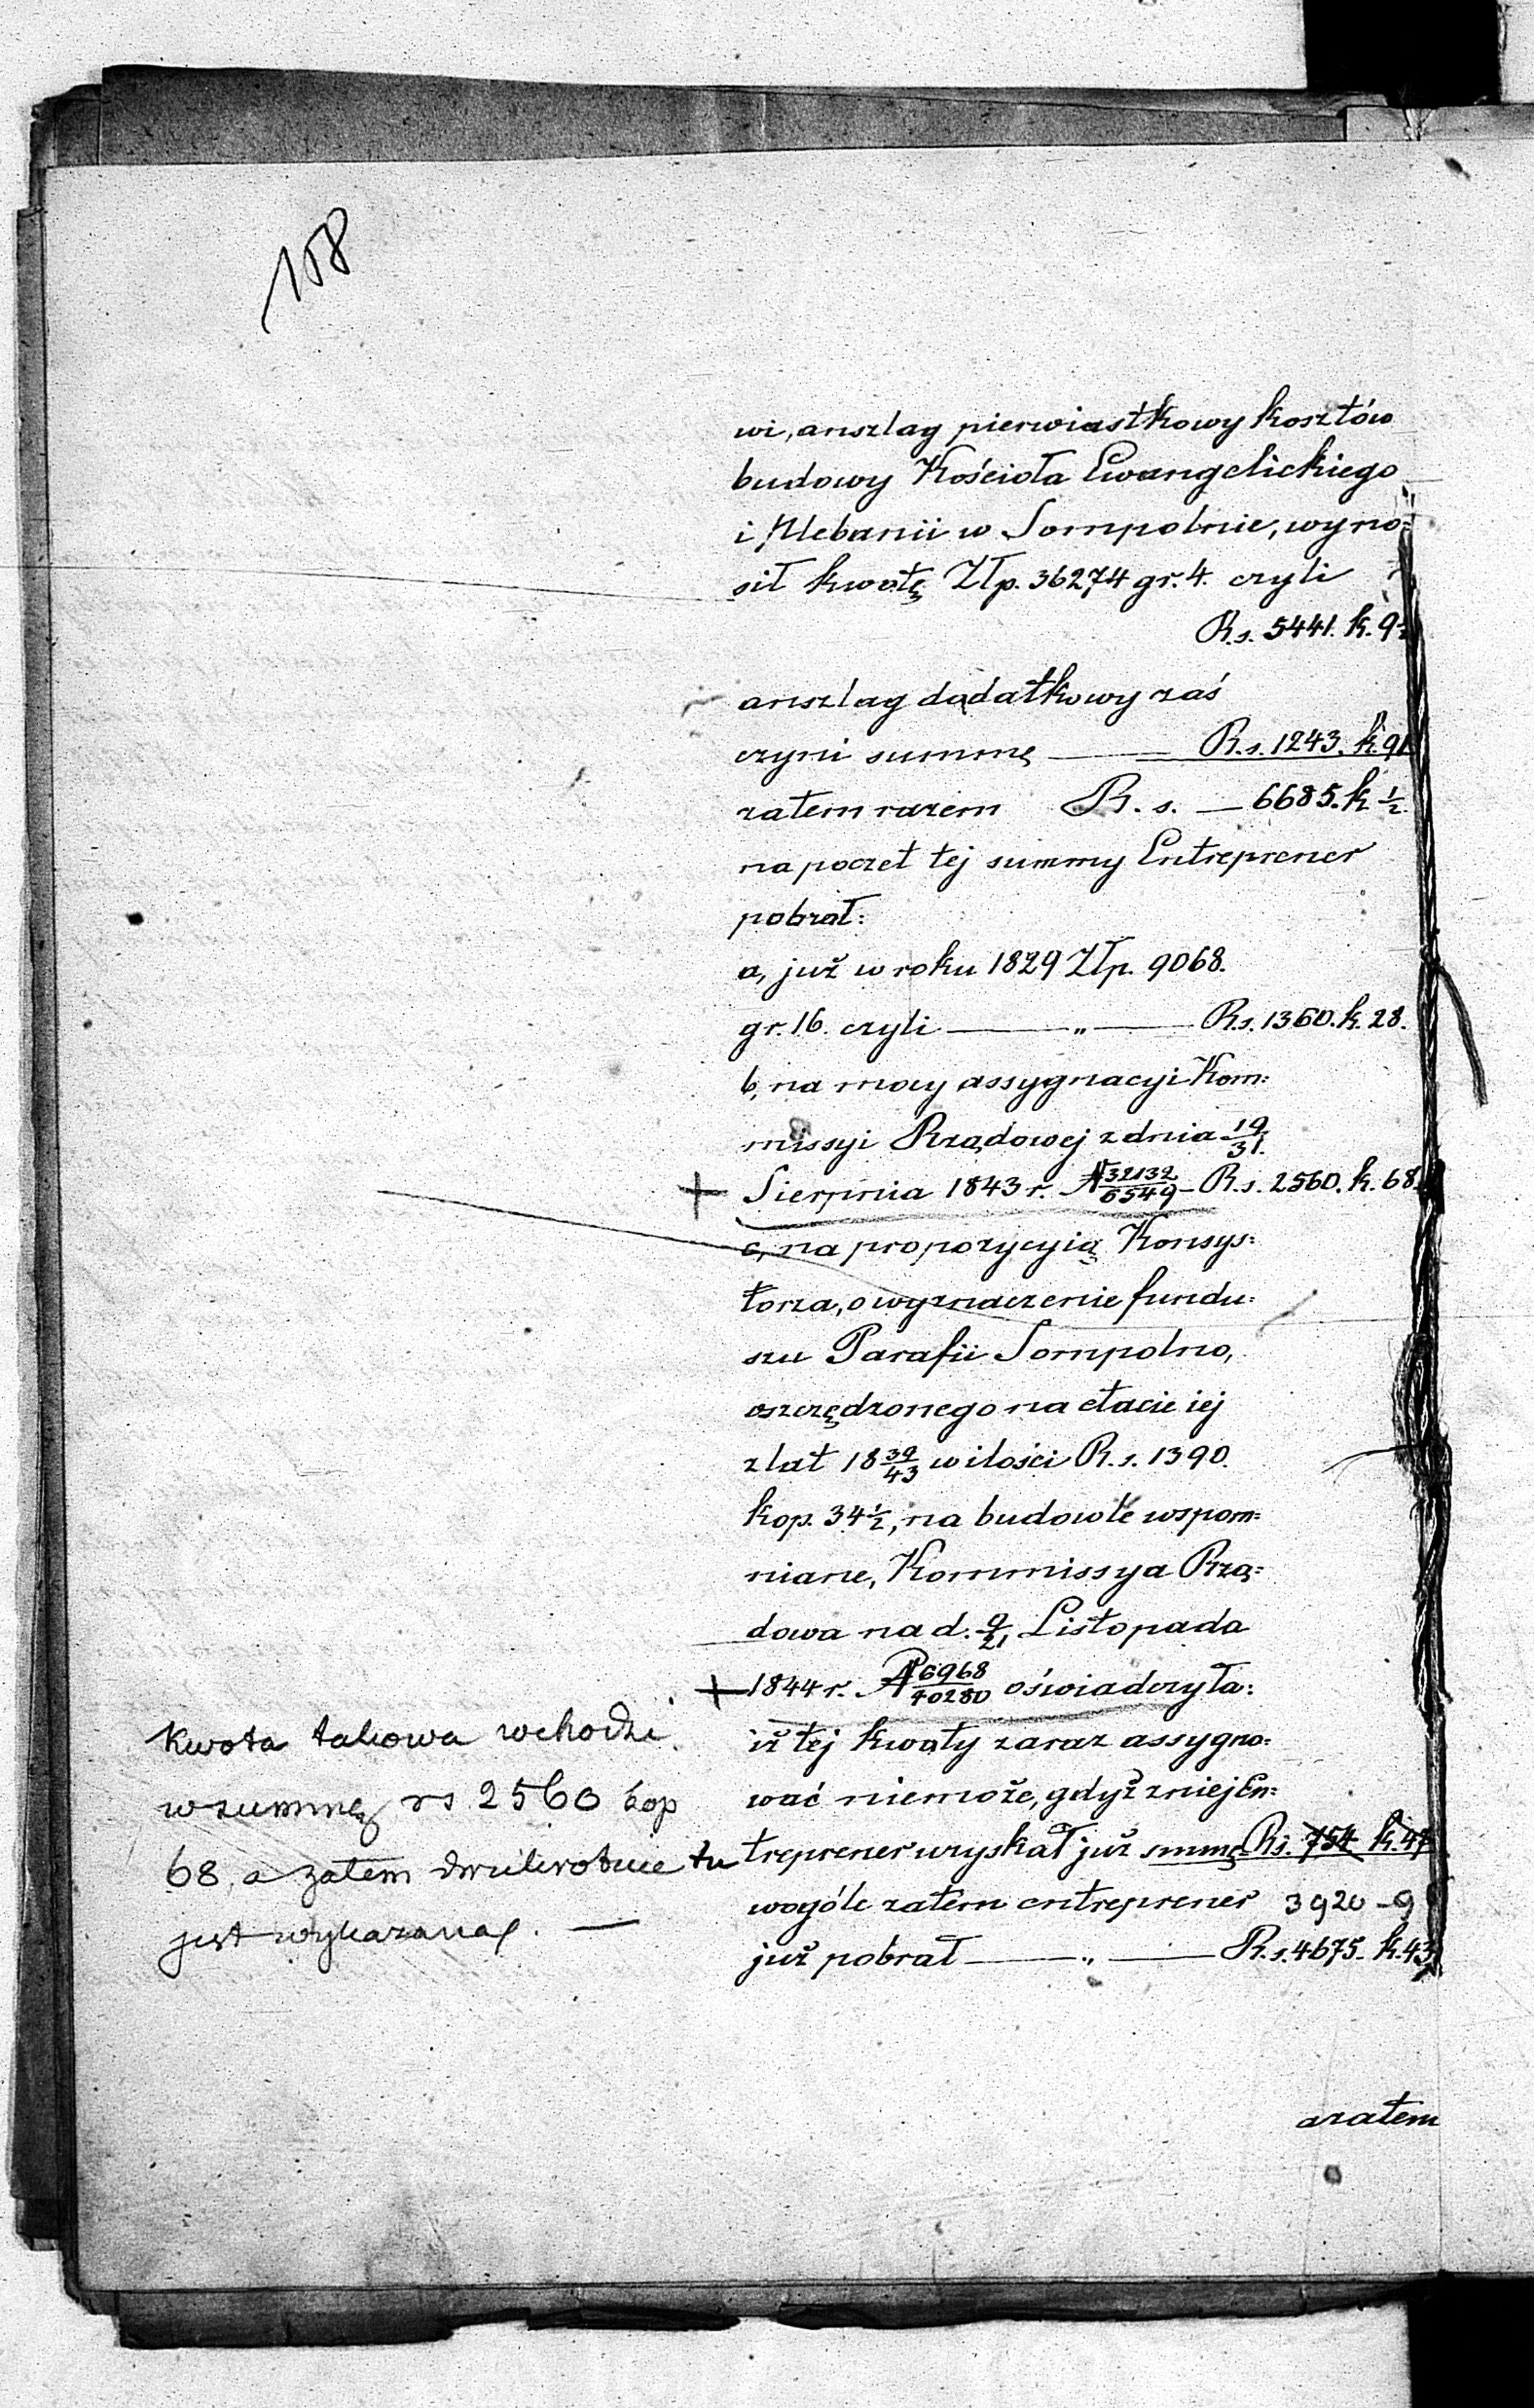 158
wi, anszlag pierwiastkowy kosztów
budowy Kościoła Ewangelickiego
i Plebanii w Sompolnie, wyno=
sił kwotę Złp. 36274 gr. 4. czyli
R.s. 5441. k. 9½
anszlag dodatkowy zaś
czyni summę — R.s. 1243. k. 91
zatem razem R. s. — 6685. k ½
na poczet tej summy Entreprener
pobrał:
a, już w roku 1829 Złp. 9068.
gr. 16. czyli — „ — R.s. 1360. k. 28.
b, na mocy assygnacyi Kom=
missyi Rządowej z dnia 19/31.
+ Sierpnia 1843 r. N 32132/6549 - R.s. 2560. k. 68.
c, na propozycyią Konsys=
torza, o wyznaczenie fundu=
szu Parafii Sompolno,
oszczędzonego na etacie iej
z lat 18 39/43 w ilości R. s. 1390.
kop. 34½, na budowle wspom=
niane, Kommissya Rzą=
dowa na d. 9/21 Listopada
+ 1844 r. N 6968/40280 oświadczyła:
iż tej kwoty zaraz assygno=
wać niemoże, gdyż z niej En=
treprener uzyskał już summę Rs. 754 k. 47
wogóle zatem entreprener 3920 - 9
już pobrał — „ — R.s. 4675. k. 43
azatem
Kwota takowa wchodzi
w summę rs 2560 kop
68, a zatem dwukrotnie tu
jest wykazaną. —